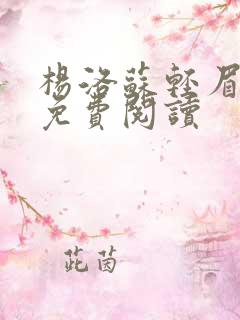 楊洛蘇輕眉
免費閱讀
茈茵